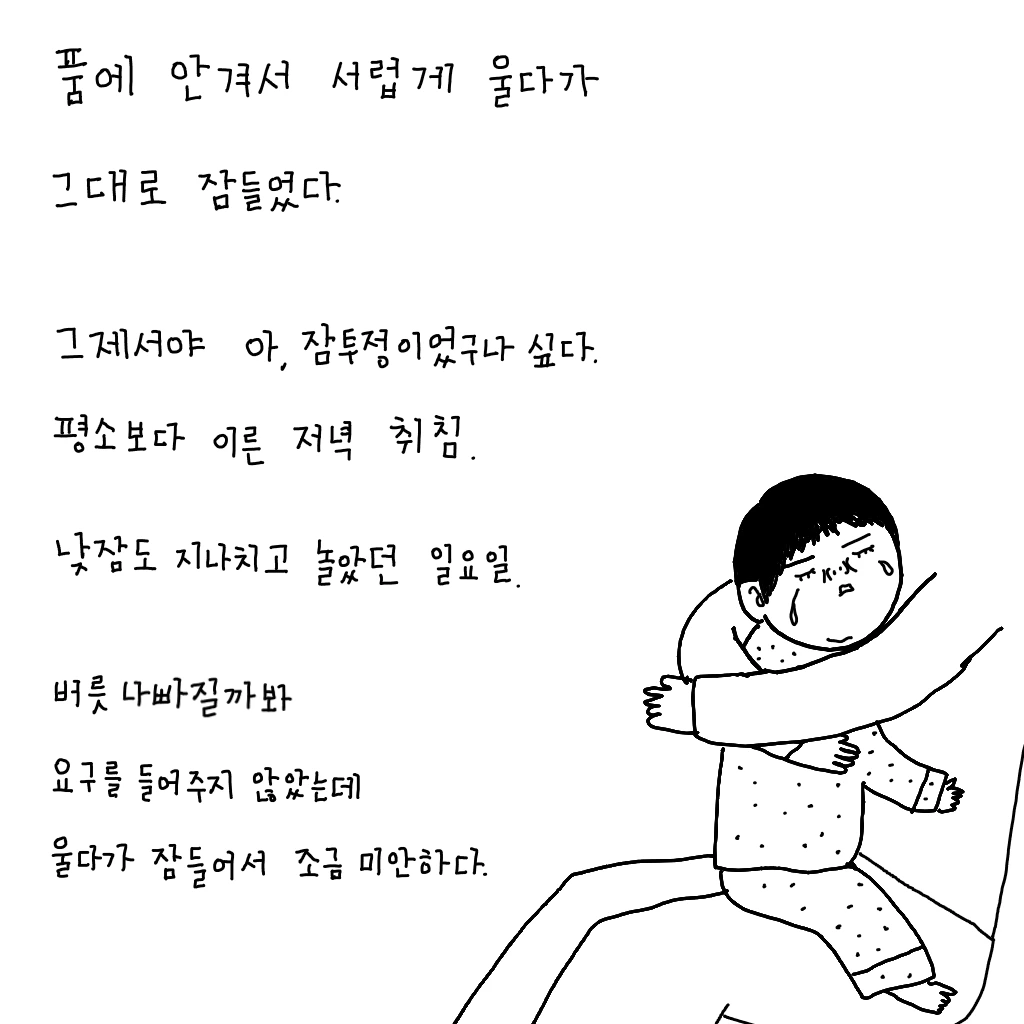 품에 안겨서 서럽게 울다가
그대로 잠들었다.
그제서야 아, 잠투정이었구나 싶다.
평소보다 이른 저녁 취침.
낮잠도 지나치고 놀았던 일요일.
버릇 나빠질까봐
요구를 들어주지 않았는데
울다가 잠들어서 조금 미안하다.